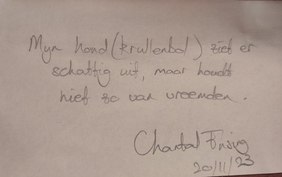 Mijn hond (krullenbol) ziet er
schattig uit, maar houdt
niet zo van vreemden.
Chantal
20/11/23